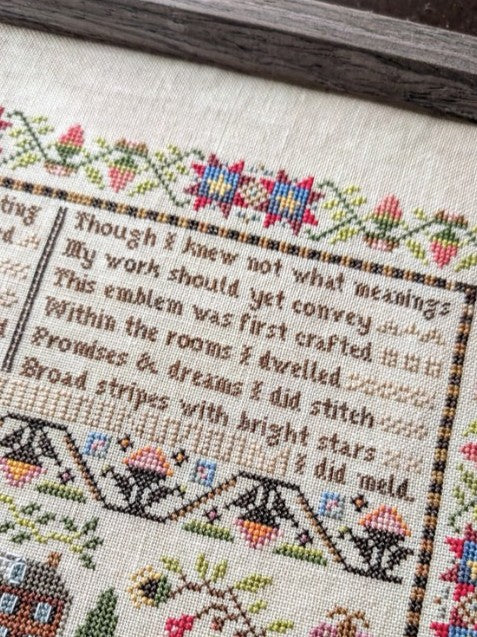 Though I knew not what meanings
My work should yet convey
This emblem was first crafted
Within the rooms I dwelled
Promises & dreams I did stitch
Broad stripes with bright stars
I did meld.